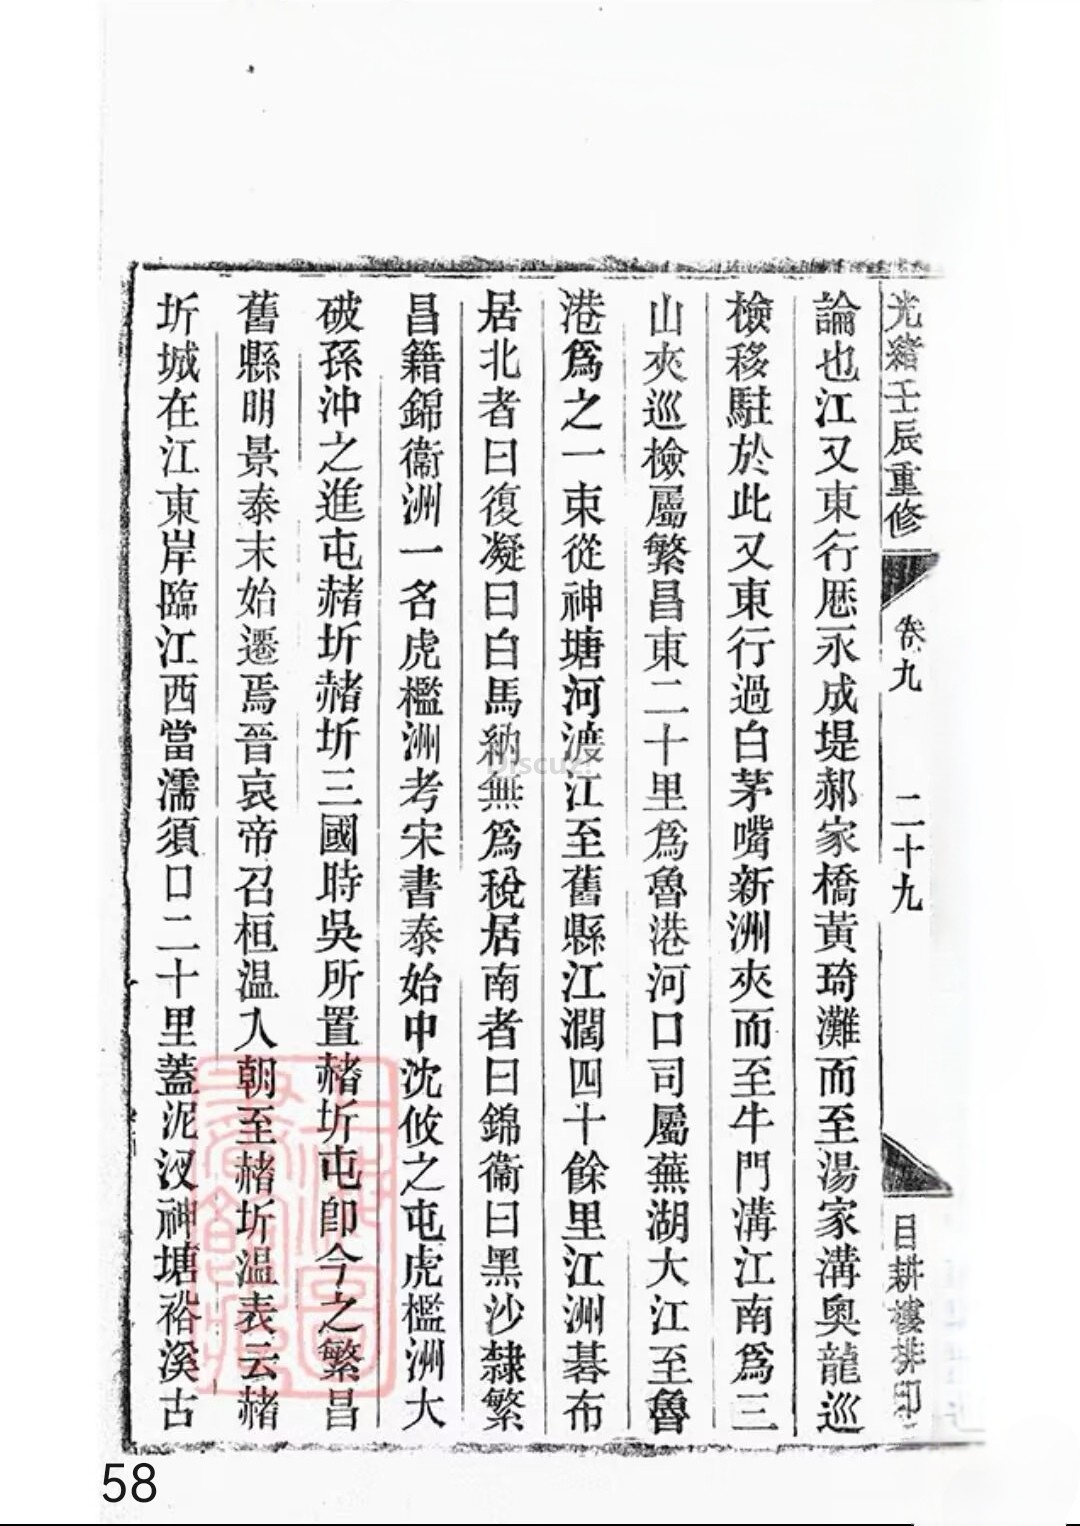 光緒壬辰重修
卷九
二十九
目耕樓排印
論也江又東行厯永成堤郝家橋黃琦灘而至湯家溝奧龍巡
檢移駐於此又東行過白茅嘴新洲夾而至牛門溝江南爲三
山夾巡檢屬繁昌東二十里爲魯港河口司屬蕪湖大江至魯
港爲之一束從神塘河渡江至舊縣江濶四十餘里江洲碁布
居北者曰復凝曰白馬納無爲稅居南者曰錦衞曰黑沙隸繁
昌籍錦衞洲一名虎檻洲考宋書泰始中沈攸之屯虎檻洲大
破孫沖之進屯赭圻赭圻三國時吳所置赭圻屯卽今之繁昌
舊縣明景泰末始遷焉晉哀帝召桓溫入朝至赭圻溫表云赭
圻城在江東岸臨江西當濡須口二十里蓋泥汊神塘裕溪古
Discuz!
58